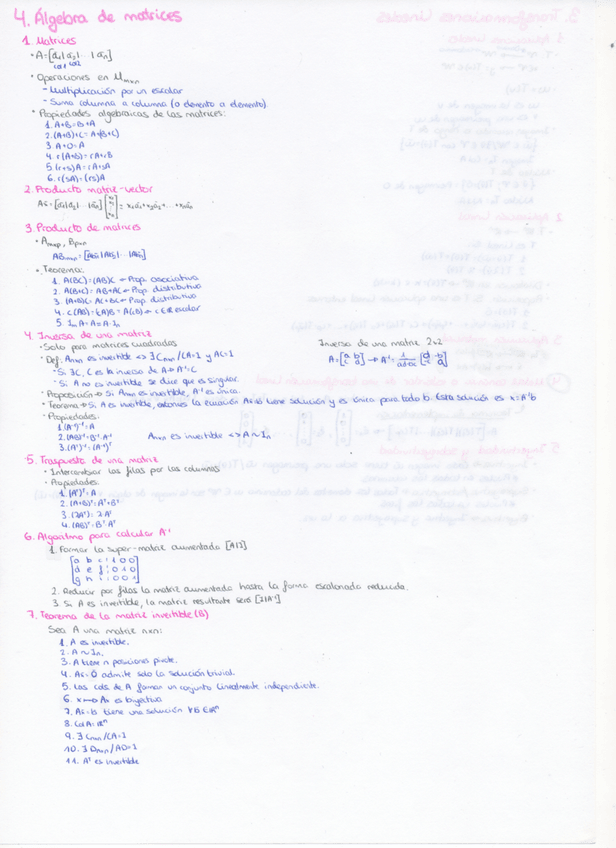 4. Álgebra de matrices
1. Matrices
• A=[a₁|a₂|...|aₙ]
col1 col2
• Operaciones en Mmxn
- Multiplicación por un escalar
- Suma columna a columna (o elemento a elemento)
• Propiedades algebraicas de las matrices:
1. A+B=B+A
2. (A+B)+C=A+(B+C)
3. A+0=A
4. r(A+B)=rA+rB
5. (r+s)A=rA+sA
6. r(sA)=(rs)A
2. Producto matriz-vector
3. Producto de matrices
• Amxp, Bpxn
ABmxn=[Ab₁|Ab₂|...|Abₙ]
• Teorema:
1. A(BC)=(AB)C ← Prop. asociativa
2. A(B+C)=AB+AC ← Prop. distributiva
3. (A+B)C=AC+BC ← Prop. distributiva
4. c(AB)=(cA)B=A(cB) ← c∈R escalar
5. ImA=A=A·In
4. Inversa de una matriz
• Solo para matrices cuadradas
• Def: Anxn es invertible <=> ∃Cnxn/CA=I y AC=I
- Si ∃C, C es la inversa de A → A⁻¹=C
- Si A no es invertible se dice que es singular.
• Proposición → Si Anxn es invertible, A⁻¹ es única.
• Teorema → Si A es invertible, entonces la ecuación Ax=b tiene solución y es única para todo b. Esta solución es x=A⁻¹b
• Propiedades:
1. (A⁻¹)⁻¹=A
2. (AB)⁻¹=B⁻¹·A⁻¹ Anxn es invertible <=> A~In
3. (Aᵀ)⁻¹=(A⁻¹)ᵀ
Inversa de una matriz 2x2
5. Traspuesta de una matriz
• Intercambiar las filas por las columnas
• Propiedades:
1. (Aᵀ)ᵀ=A
2. (A+B)ᵀ=Aᵀ+Bᵀ
3. (λA)ᵀ=λAᵀ
4. (AB)ᵀ=BᵀAᵀ
6. Algoritmo para calcular A⁻¹
1. Formar la super-matriz aumentada [A|I]
[a b c : 1 0 0
d e f : 0 1 0
g h i : 0 0 1]
2. Reducir por filas la matriz aumentada hasta la forma escalonada reducida.
3. Si A es invertible, la matriz resultante será [I|A⁻¹]
7. Teorema de la matriz invertible (B)
Sea A una matriz nxn:
1. A es invertible.
2. A~In.
3. A tiene n posiciones pivote.
4. Ax=0 admite solo la solución trivial.
5. Las cols de A forman un conjunto linealmente independiente.
6. x↦Ax es biyectiva
7. Ax=b tiene una solución ∀b∈Rⁿ
8. ColA=Rⁿ
9. ∃Cnxn/CA=I
10. ∃Dnxn/AD=I
11. Aᵀ es invertible